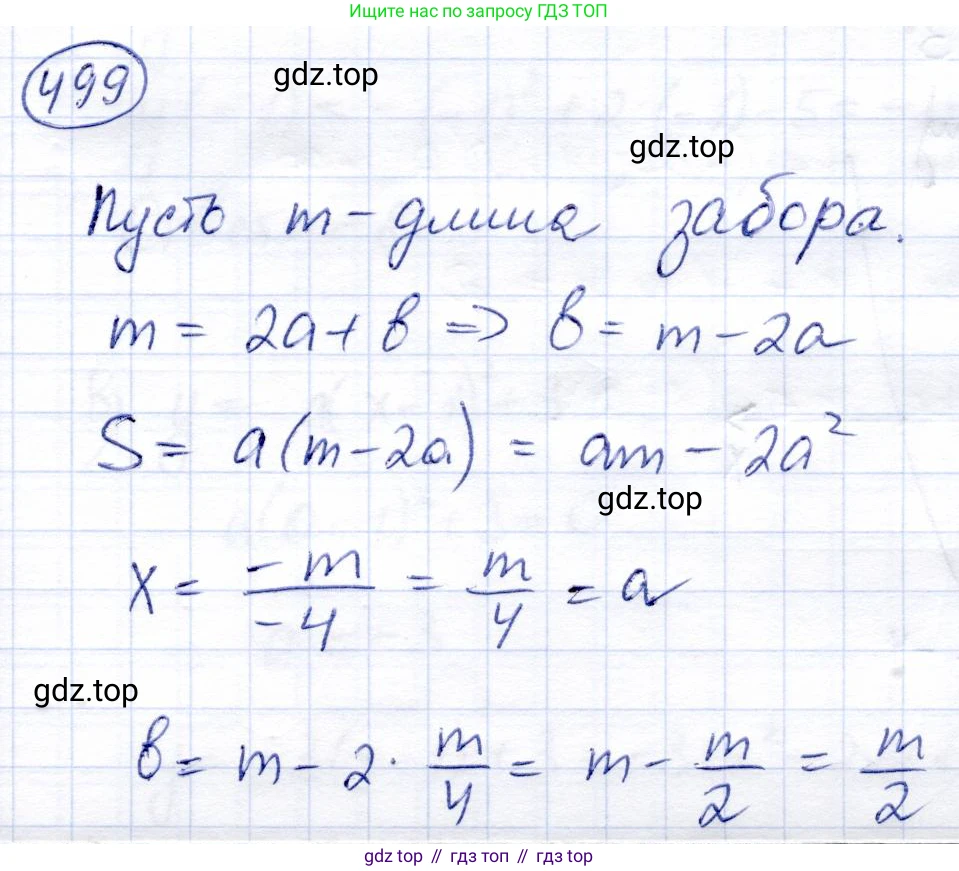 Ищите нас по запросу ГДЗ ТОП
499
gdz.top
gdz.top
Пусть m - длина забора.
m = 2a + b => b = m - 2a
S = a(m - 2a) = am - 2a²
gdz.top
x = -m/-4 = m/4 = a
gdz.top
b = m - 2 · m/4 = m - m/2 = m/2
gdz top // гдз топ // gdz top